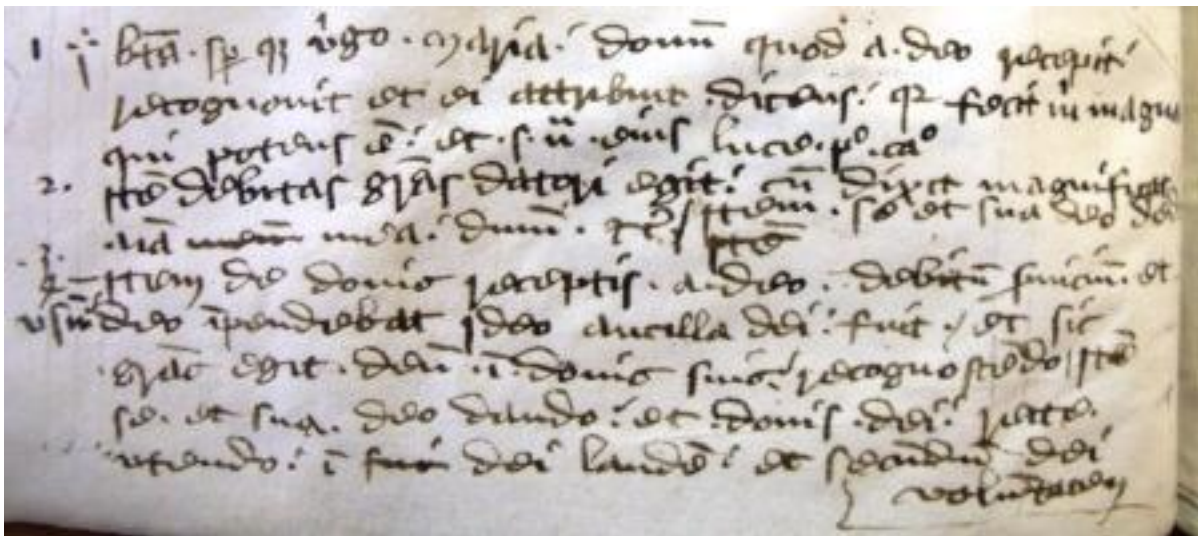 1 btā. sp qz v̾go. maria. donū quod a. deo recepit
recognouit et ei attribuit. dicens. qz fecit m magna
qui potens ē. et. s. n̄. eius luce. pº. caº
2. Itē debitas gr̄as datori egit. cū dixit magnificat
.aīa mea. dnm̄. Item. se et sua deo
3. Item de donis receptis. a. deo. debitū et
deo īpendebat ideo ancilla dei. fuit / et sic
gr̄as egit. deū. ī donis suis. recognoscēdo Itē
se. et sua. deo dando. et donis. dei. recte.
vtendo. ī dei laudē. et secundū dei
voluntatem